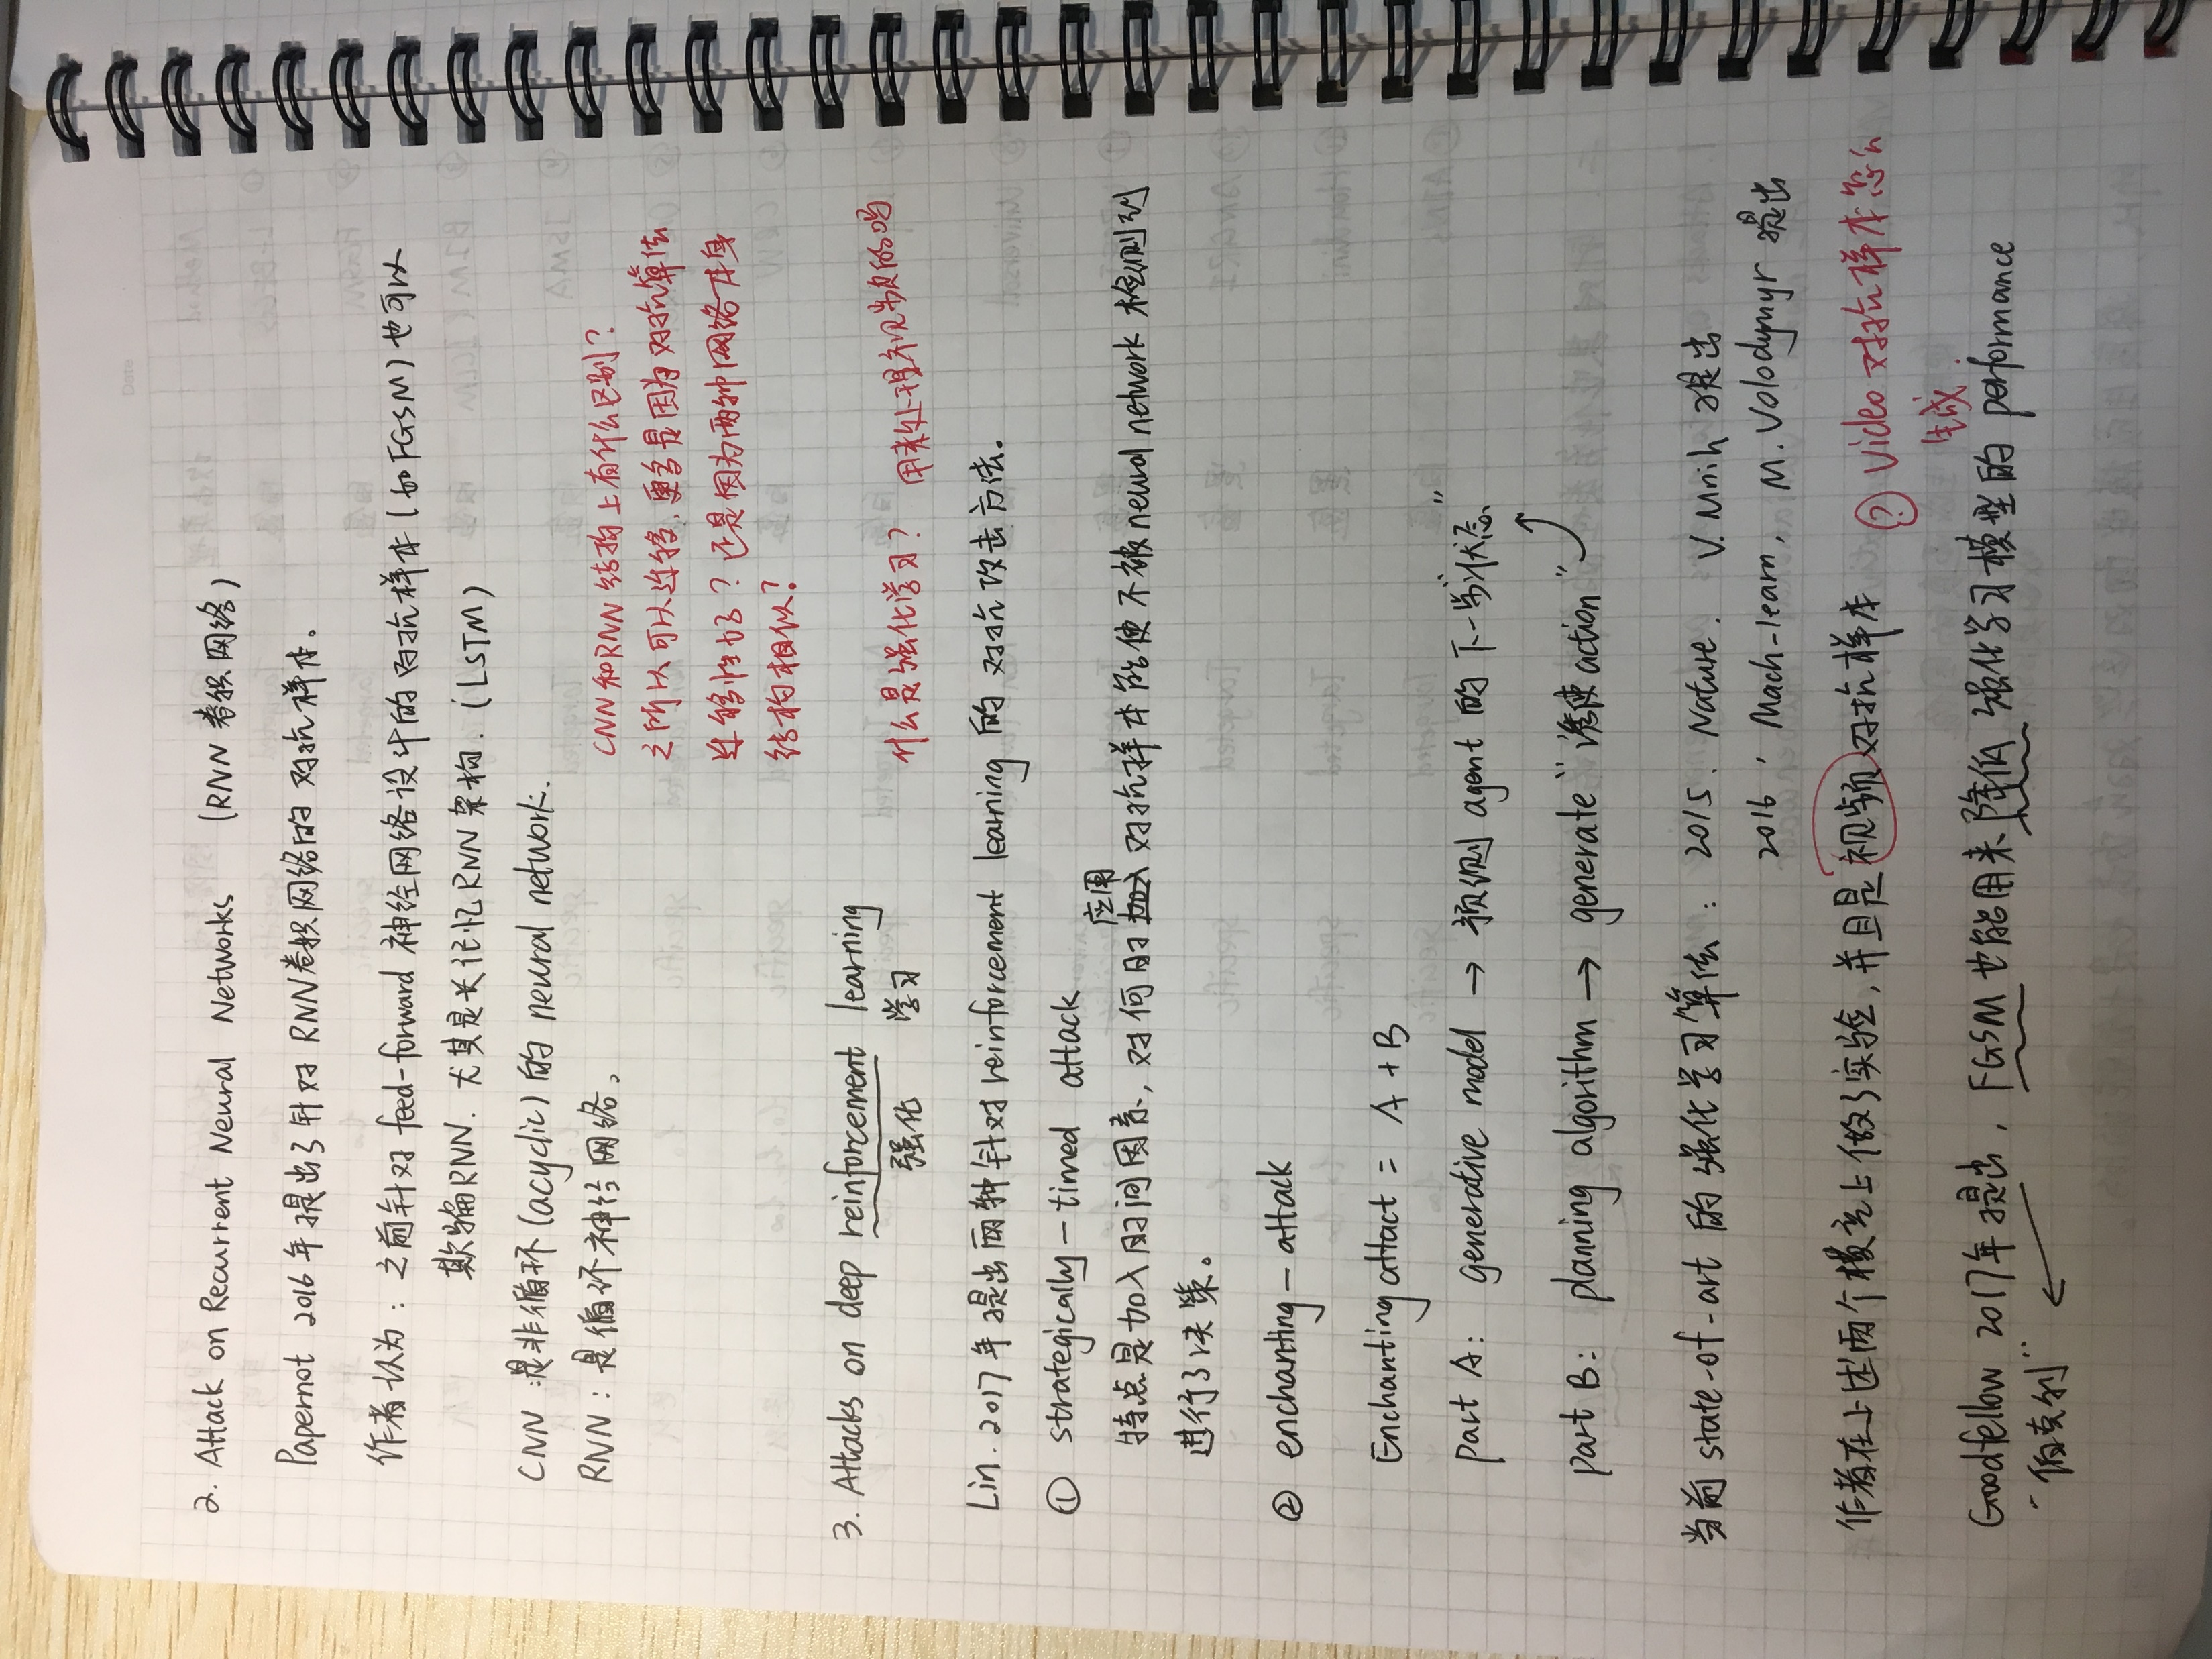 Date
2. Attack on Recurrent Neural Networks (RNN 卷积网络)
Papernot 2016年提出了针对RNN卷积网络的对抗样本。
作者认为:之前针对 feed-forward 神经网络设计的对抗样本(如FGSM)也可以
欺骗RNN.尤其是长记忆RNN架构.(LSTM)
CNN:是非循环(acyclic)的 neural network.
RNN:是循环神经网络。
CNN和RNN结构上有什么区别?
之所以可以迁移,更多是因为对抗算法
迁移性好?还是因为两种网络本身
结构相似?
3. Attacks on deep reinforcement learning
强化 学习
什么是强化学习? 用来处理视频的吗
Lin. 2017年提出两种针对 reinforcement learning 的对抗攻击方法.
① strategically-timed attack
应用
特点是加入时间因素,对何时加入对抗样本能使不被neural network检测到
进行了决策。
② enchanting-attack
Enchanting attact = A + B
Part A: generative model → 预测 agent 的下一步“状态”
Part B: planning algorithm → generate “诱使action”
当前 state-of-art 的强化学习算法: 2015. Nature. V. Mnih 提出
2016, Mach-learn, M. Volodymyr 提出
作者在上述两个模型上做了实验,并且是视频对抗样本 ? Video对抗样本怎么
生成
Goodfellow 2017年提出, FGSM也能用来降低 强化学习模型的 performance